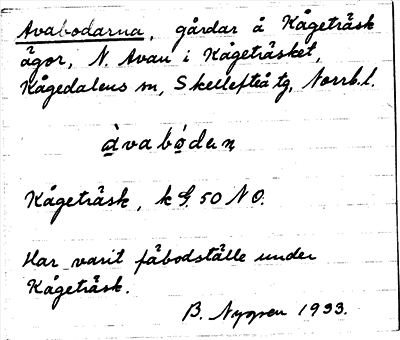 Avabodarna, gårdar å Kågeträsk
ägor, N. Avan i Kågeträsket,
Kågedalens sn, Skellefteå tg, Norrb. l.
àvabo̱dan
Kågeträsk, k G. 50 NO.
Har varit fäbodställe under
Kågeträsk.
B. Nygren 1933.